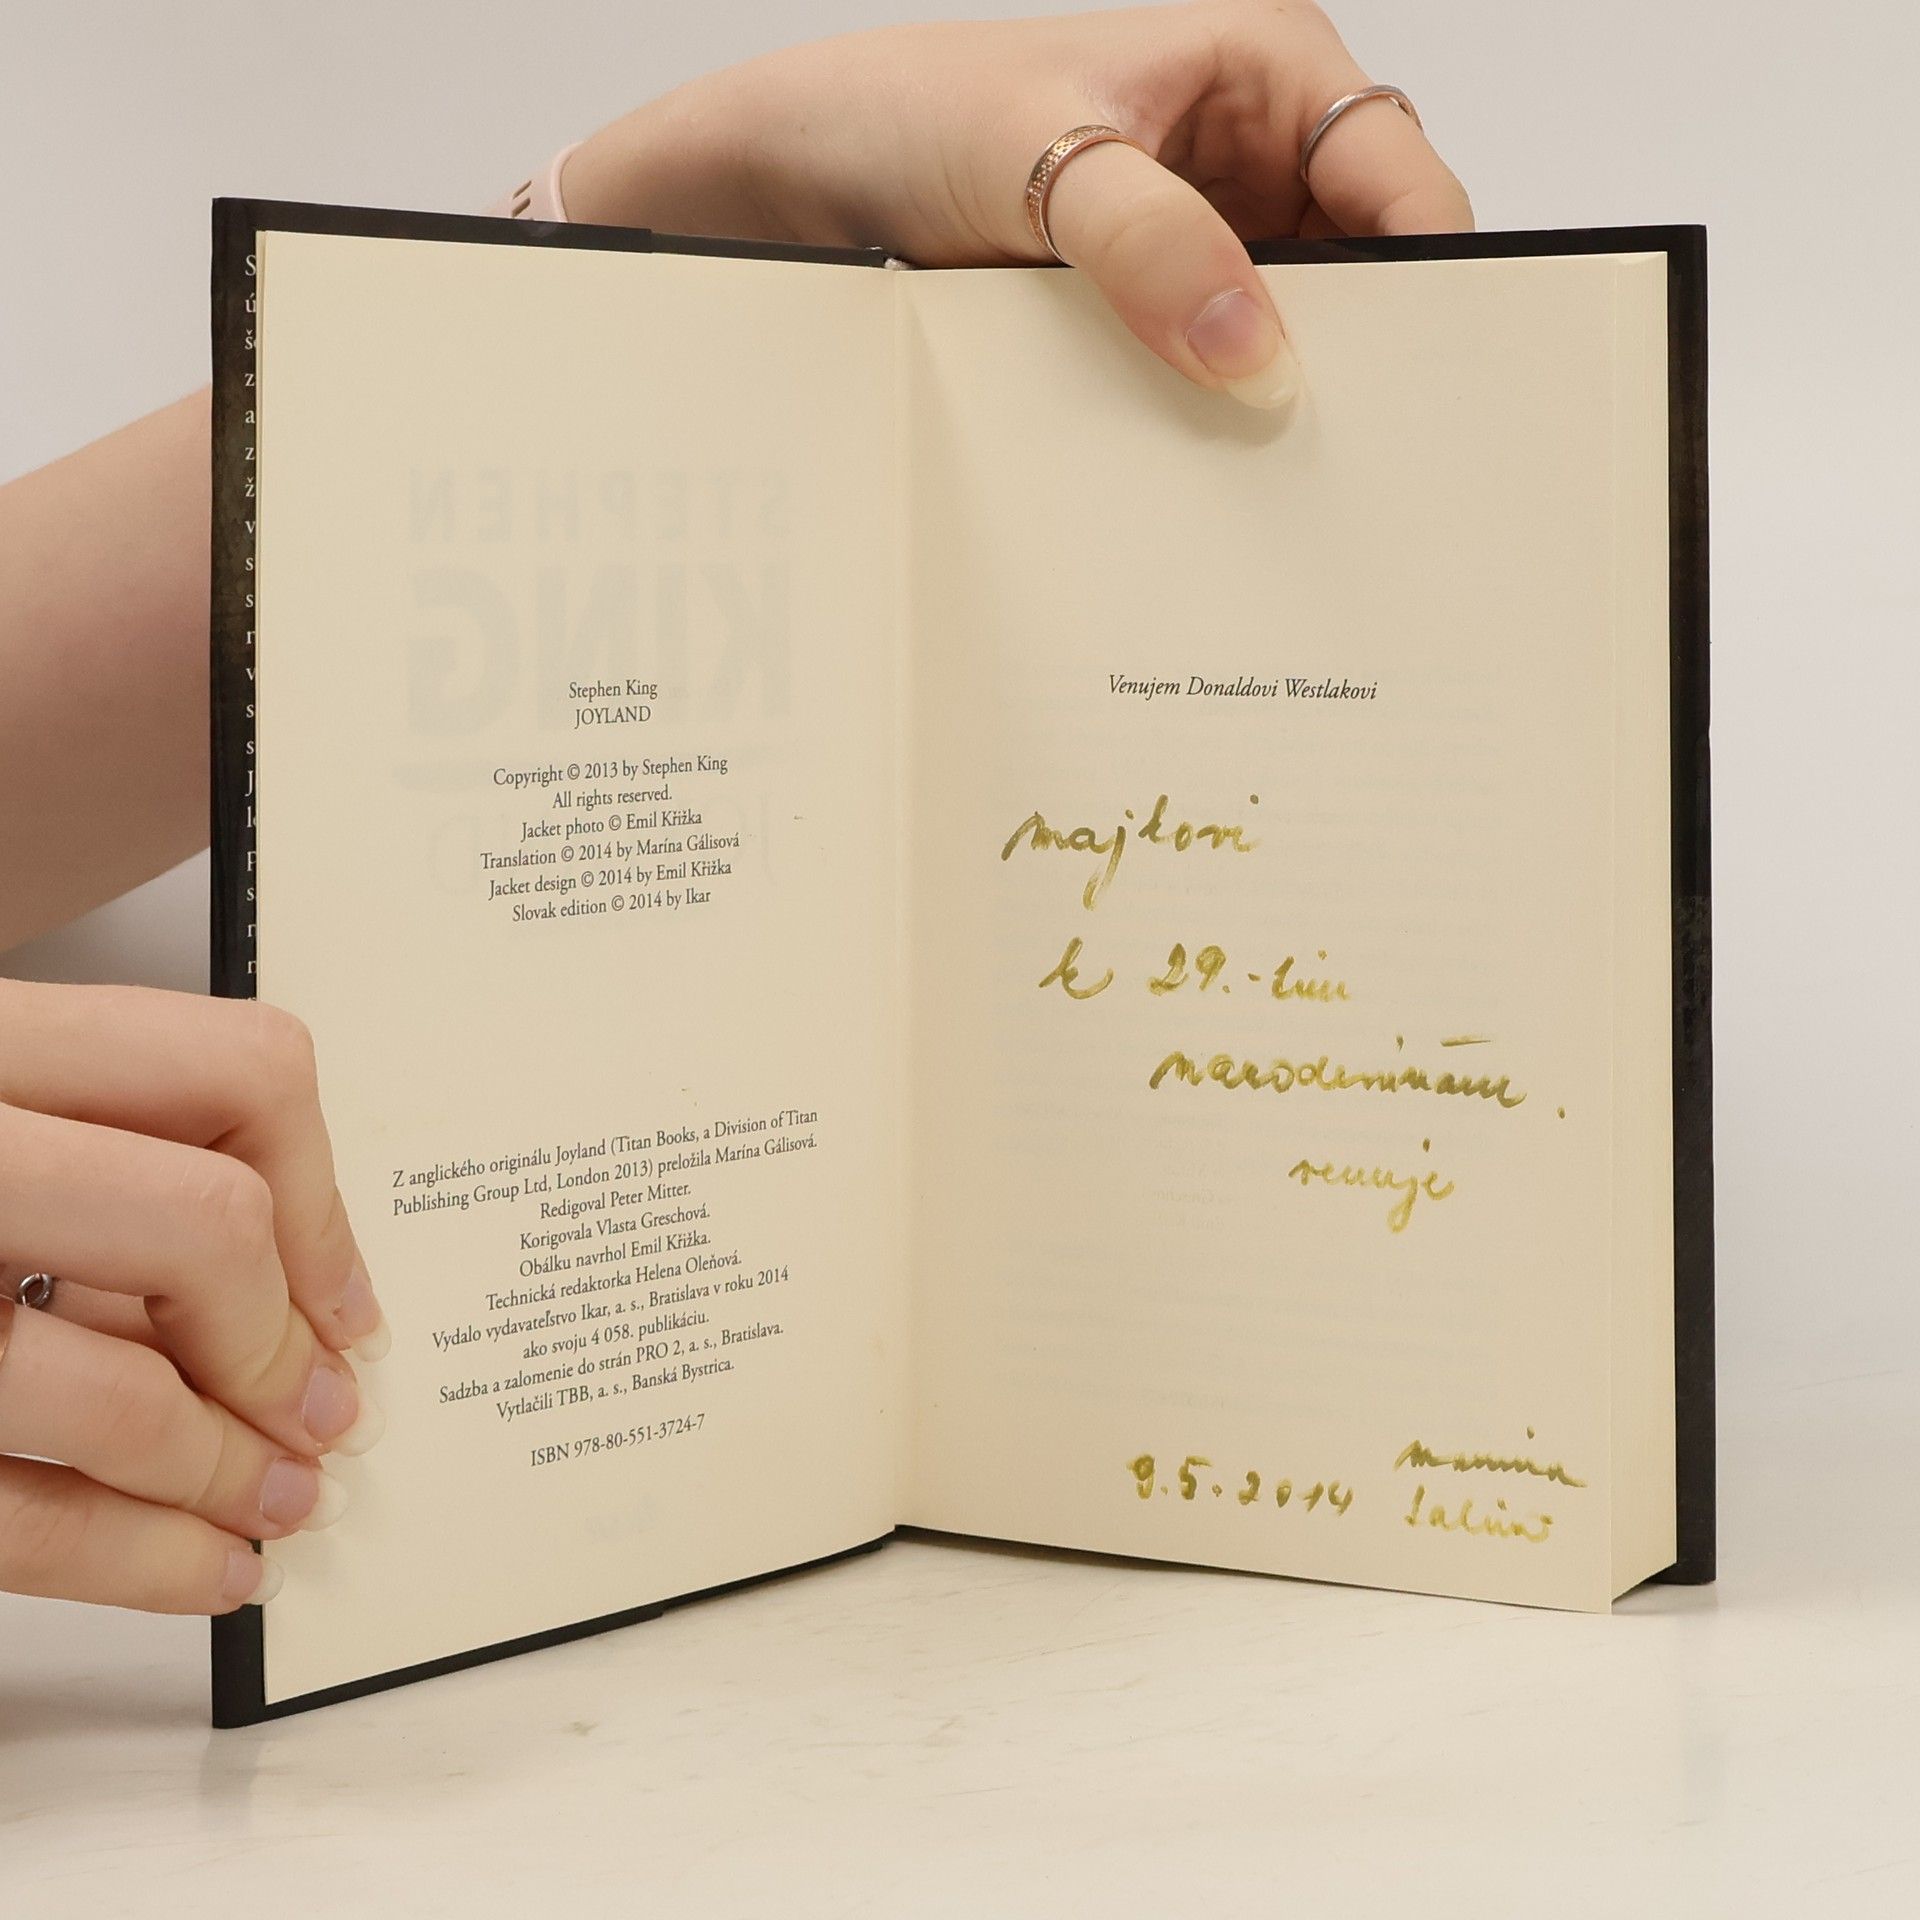 Stephen King
JOYLAND
Copyright © 2013 by Stephen King
All rights reserved.
Jacket photo © Emil Křižka
Translation © 2014 by Marína Gálisová
Jacket design © 2014 by Emil Křižka
Slovak edition © 2014 by Ikar
Z anglického originálu Joyland (Titan Books, a Division of Titan
Publishing Group Ltd, London 2013) preložila Marína Gálisová.
Redigoval Peter Mitter.
Korigovala Vlasta Greschová.
Obálku navrhol Emil Křižka.
Technická redaktorka Helena Oleňová.
Vydalo vydavateľstvo Ikar, a. s., Bratislava v roku 2014
ako svoju 4 058. publikáciu.
Sadzba a zalomenie do strán PRO 2, a. s., Bratislava.
Vytlačili TBB, a. s., Banská Bystrica.
ISBN 978-80-551-3724-7
Venujem Donaldovi Westlakovi
majkovi
k 29.-tim
narodeninám.
venuje
9.5.2014
STEPHEN
KING